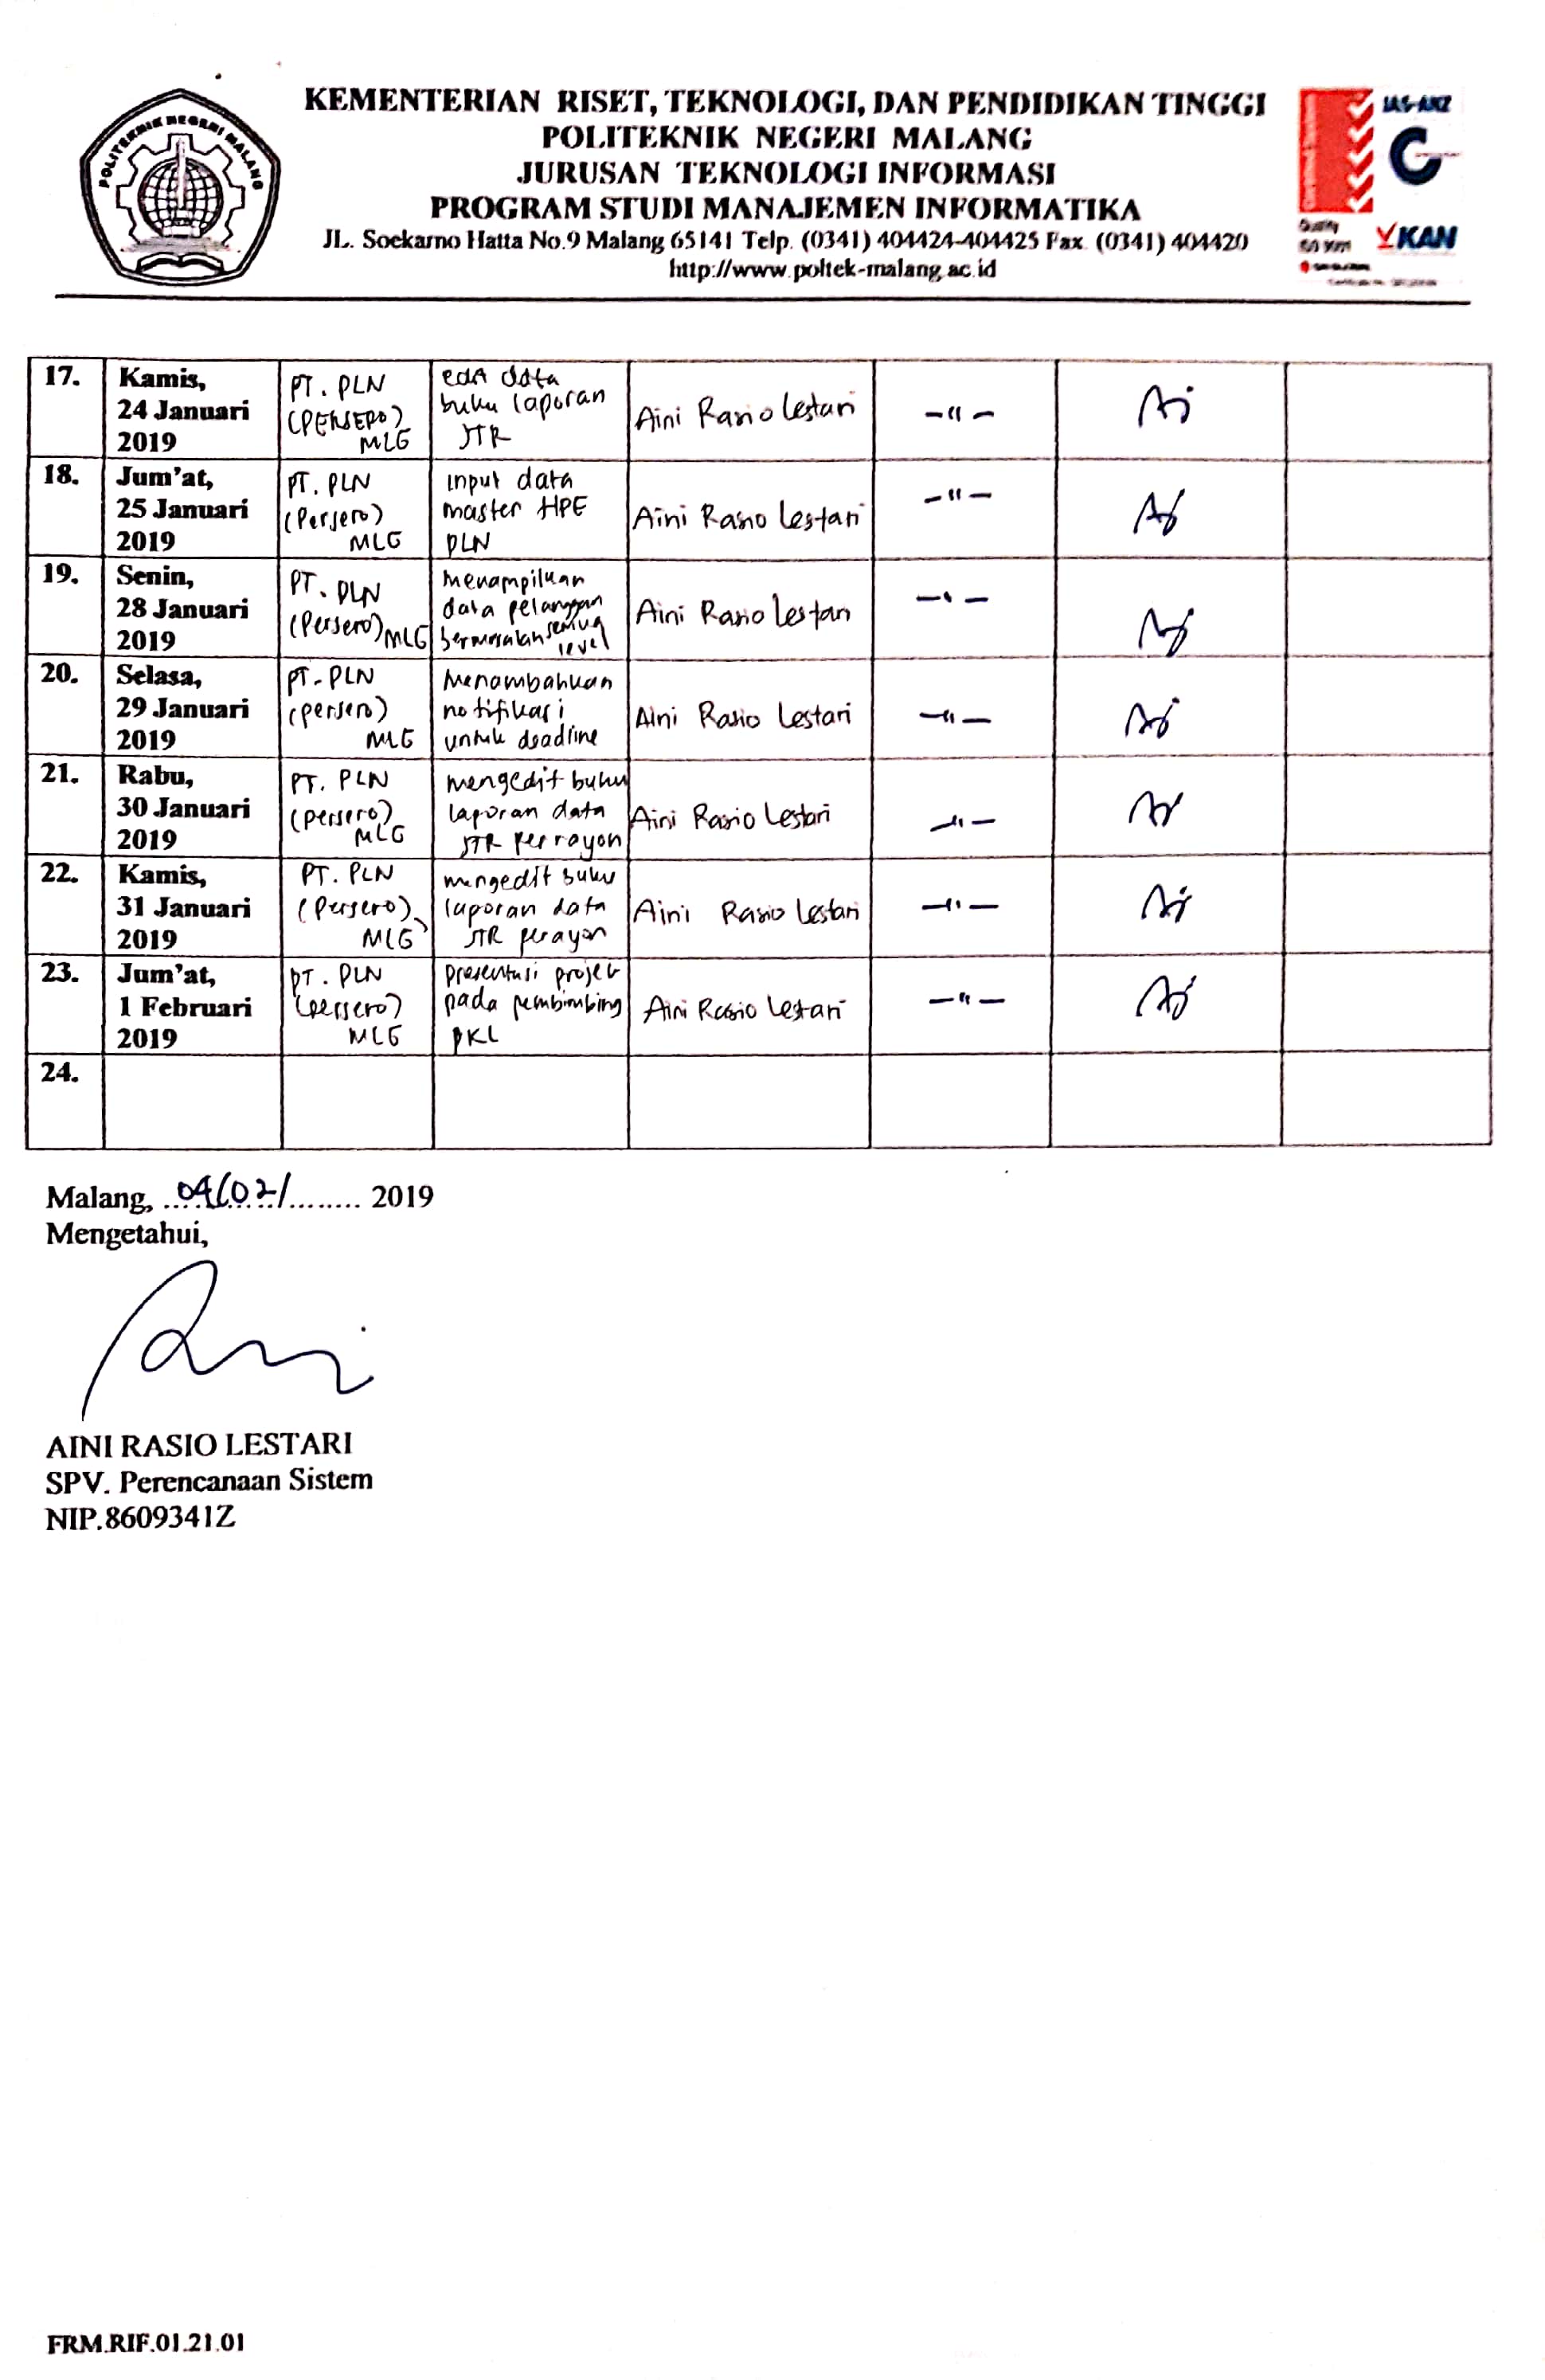 POLITEKNIK NEGERI MALANG
KEMENTERIAN RISET, TEKNOLOGI, DAN PENDIDIKAN TINGGI
POLITEKNIK NEGERI MALANG
JURUSAN TEKNOLOGI INFORMASI
PROGRAM STUDI MANAJEMEN INFORMATIKA
JL. Soekarno Hatta No.9 Malang 65141 Telp. (0341) 404424-404425 Fax. (0341) 404420
http://www.poltek-malang.ac.id
JAS-ANZ
KAN
17.
Kamis,
24 Januari
2019
PT. PLN
(PERSERO)
MLG
edit data
buku laporan
JTR
Aini Rasio Lestari
-"-
18.
Jum'at,
25 Januari
2019
PT. PLN
(Persero)
MLG
input data
master HPE
PLN
Aini Rasio Lestari
-"-
19.
Senin,
28 Januari
2019
PT. PLN
(Persero) MLG
Menampilkan
data pelanggan
semua
level
Aini Rasio Lestari
-"-
20.
Selasa,
29 Januari
2019
PT. PLN
(persero)
MLG
Menambahkan
notifikasi
untuk deadline
Aini Rasio Lestari
-"-
21.
Rabu,
30 Januari
2019
PT. PLN
(persero)
MLG
mengedit buku
laporan data
JTR per rayon
Aini Rasio Lestari
-"-
22.
Kamis,
31 Januari
2019
PT. PLN
(Persero)
MLG
mengedit buku
laporan data
JTR perayon
Aini Rasio Lestari
-"-
23.
Jum'at,
1 Februari
2019
PT. PLN
(persero)
MLG
presentasi projek
pada pembimbing
PKL
Aini Rasio Lestari
-"-
24.
Malang, 04/02/........ 2019
Mengetahui,
AINI RASIO LESTARI
SPV. Perencanaan Sistem
NIP.8609341Z
FRM.RIF.01.21.01